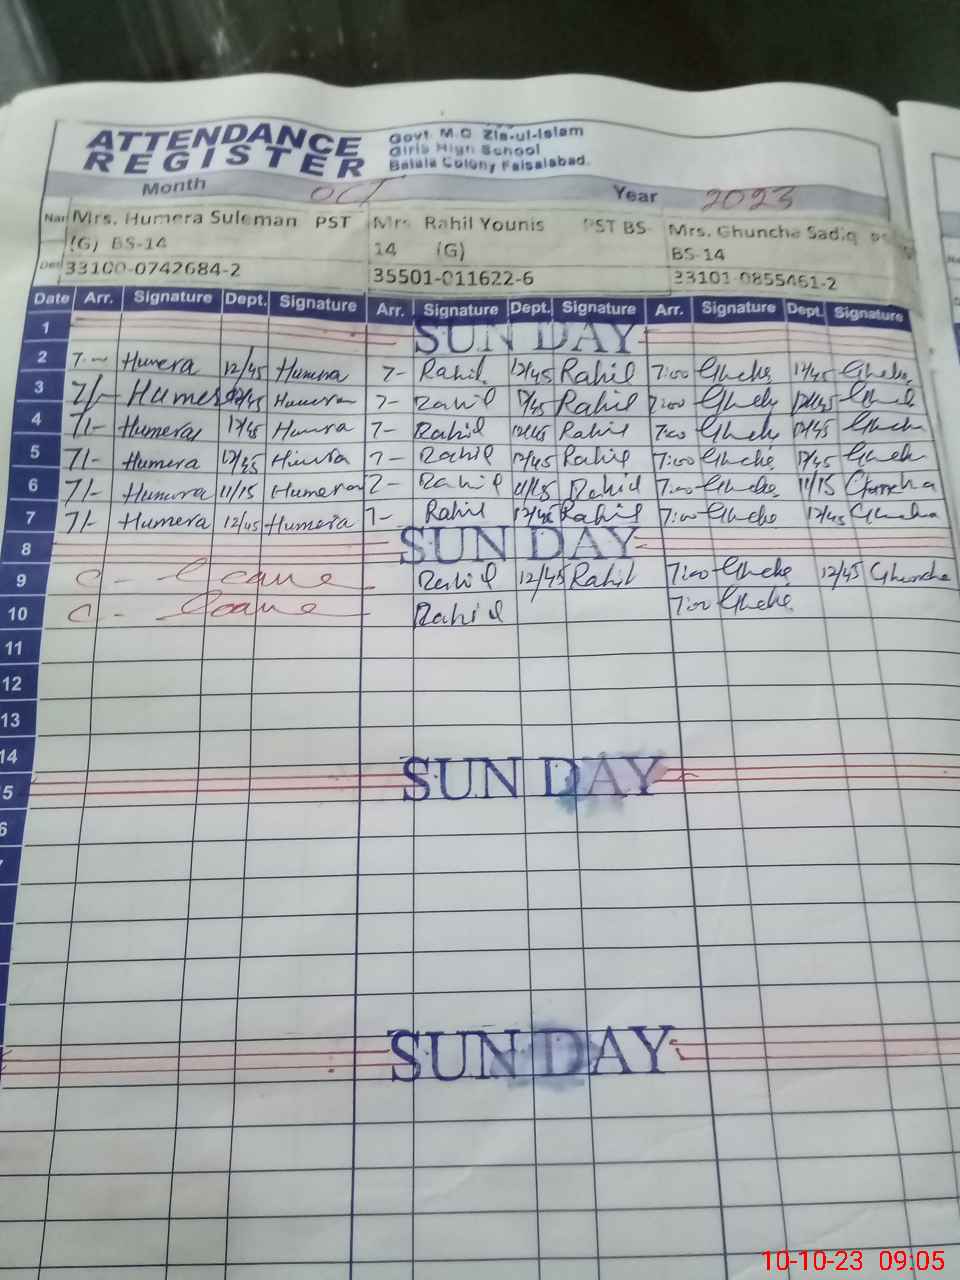 ATTENDANCE
REGISTER
Govt M.C Zia-ul-Islam
Girls High School
Balala Colony Faisalabad.
Month OCT Year 2023
Mrs. Humera Suleman PST
(G) BS-14
33100-0742684-2
Mrs Rahil Younis PST BS-
14 (G)
35501-011622-6
Mrs. Ghuncha Sadiq
BS-14
33101-0855461-2
Date Arr. Signature Dept. Signature Arr. Signature Dept. Signature Arr. Signature Dept. Signature
1 SUNDAY
2 7- Humera 12/45 Humera 7- Rahil 12/45 Rahil 7:00 12/45
3 7/- Humera 12/45 Humera 7- Rahil 12/45 Rahil 7:00 12/45
4 7/- Humera 12/45 Humera 7- Rahil 12/45 Rahil 7:00 12/45
5 7/- Humera 12/45 Humera 7- Rahil 12/45 Rahil 7:00 12/45
6 7/- Humera 11/15 Humera 7- Rahil 11/15 Rahil 7:00 11/15 Ghuncha
7 7/- Humera 12/45 Humera 7- Rahil 12/45 Rahil 7:00 12/45 Ghuncha
8 SUNDAY
9 C - Leave Rahil 12/45 Rahil 7:00 12/45 Ghuncha
10 C - Leave Rahil 7:00
11
12
13
14
5 SUNDAY
6
SUNDAY
10-10-23 09:05